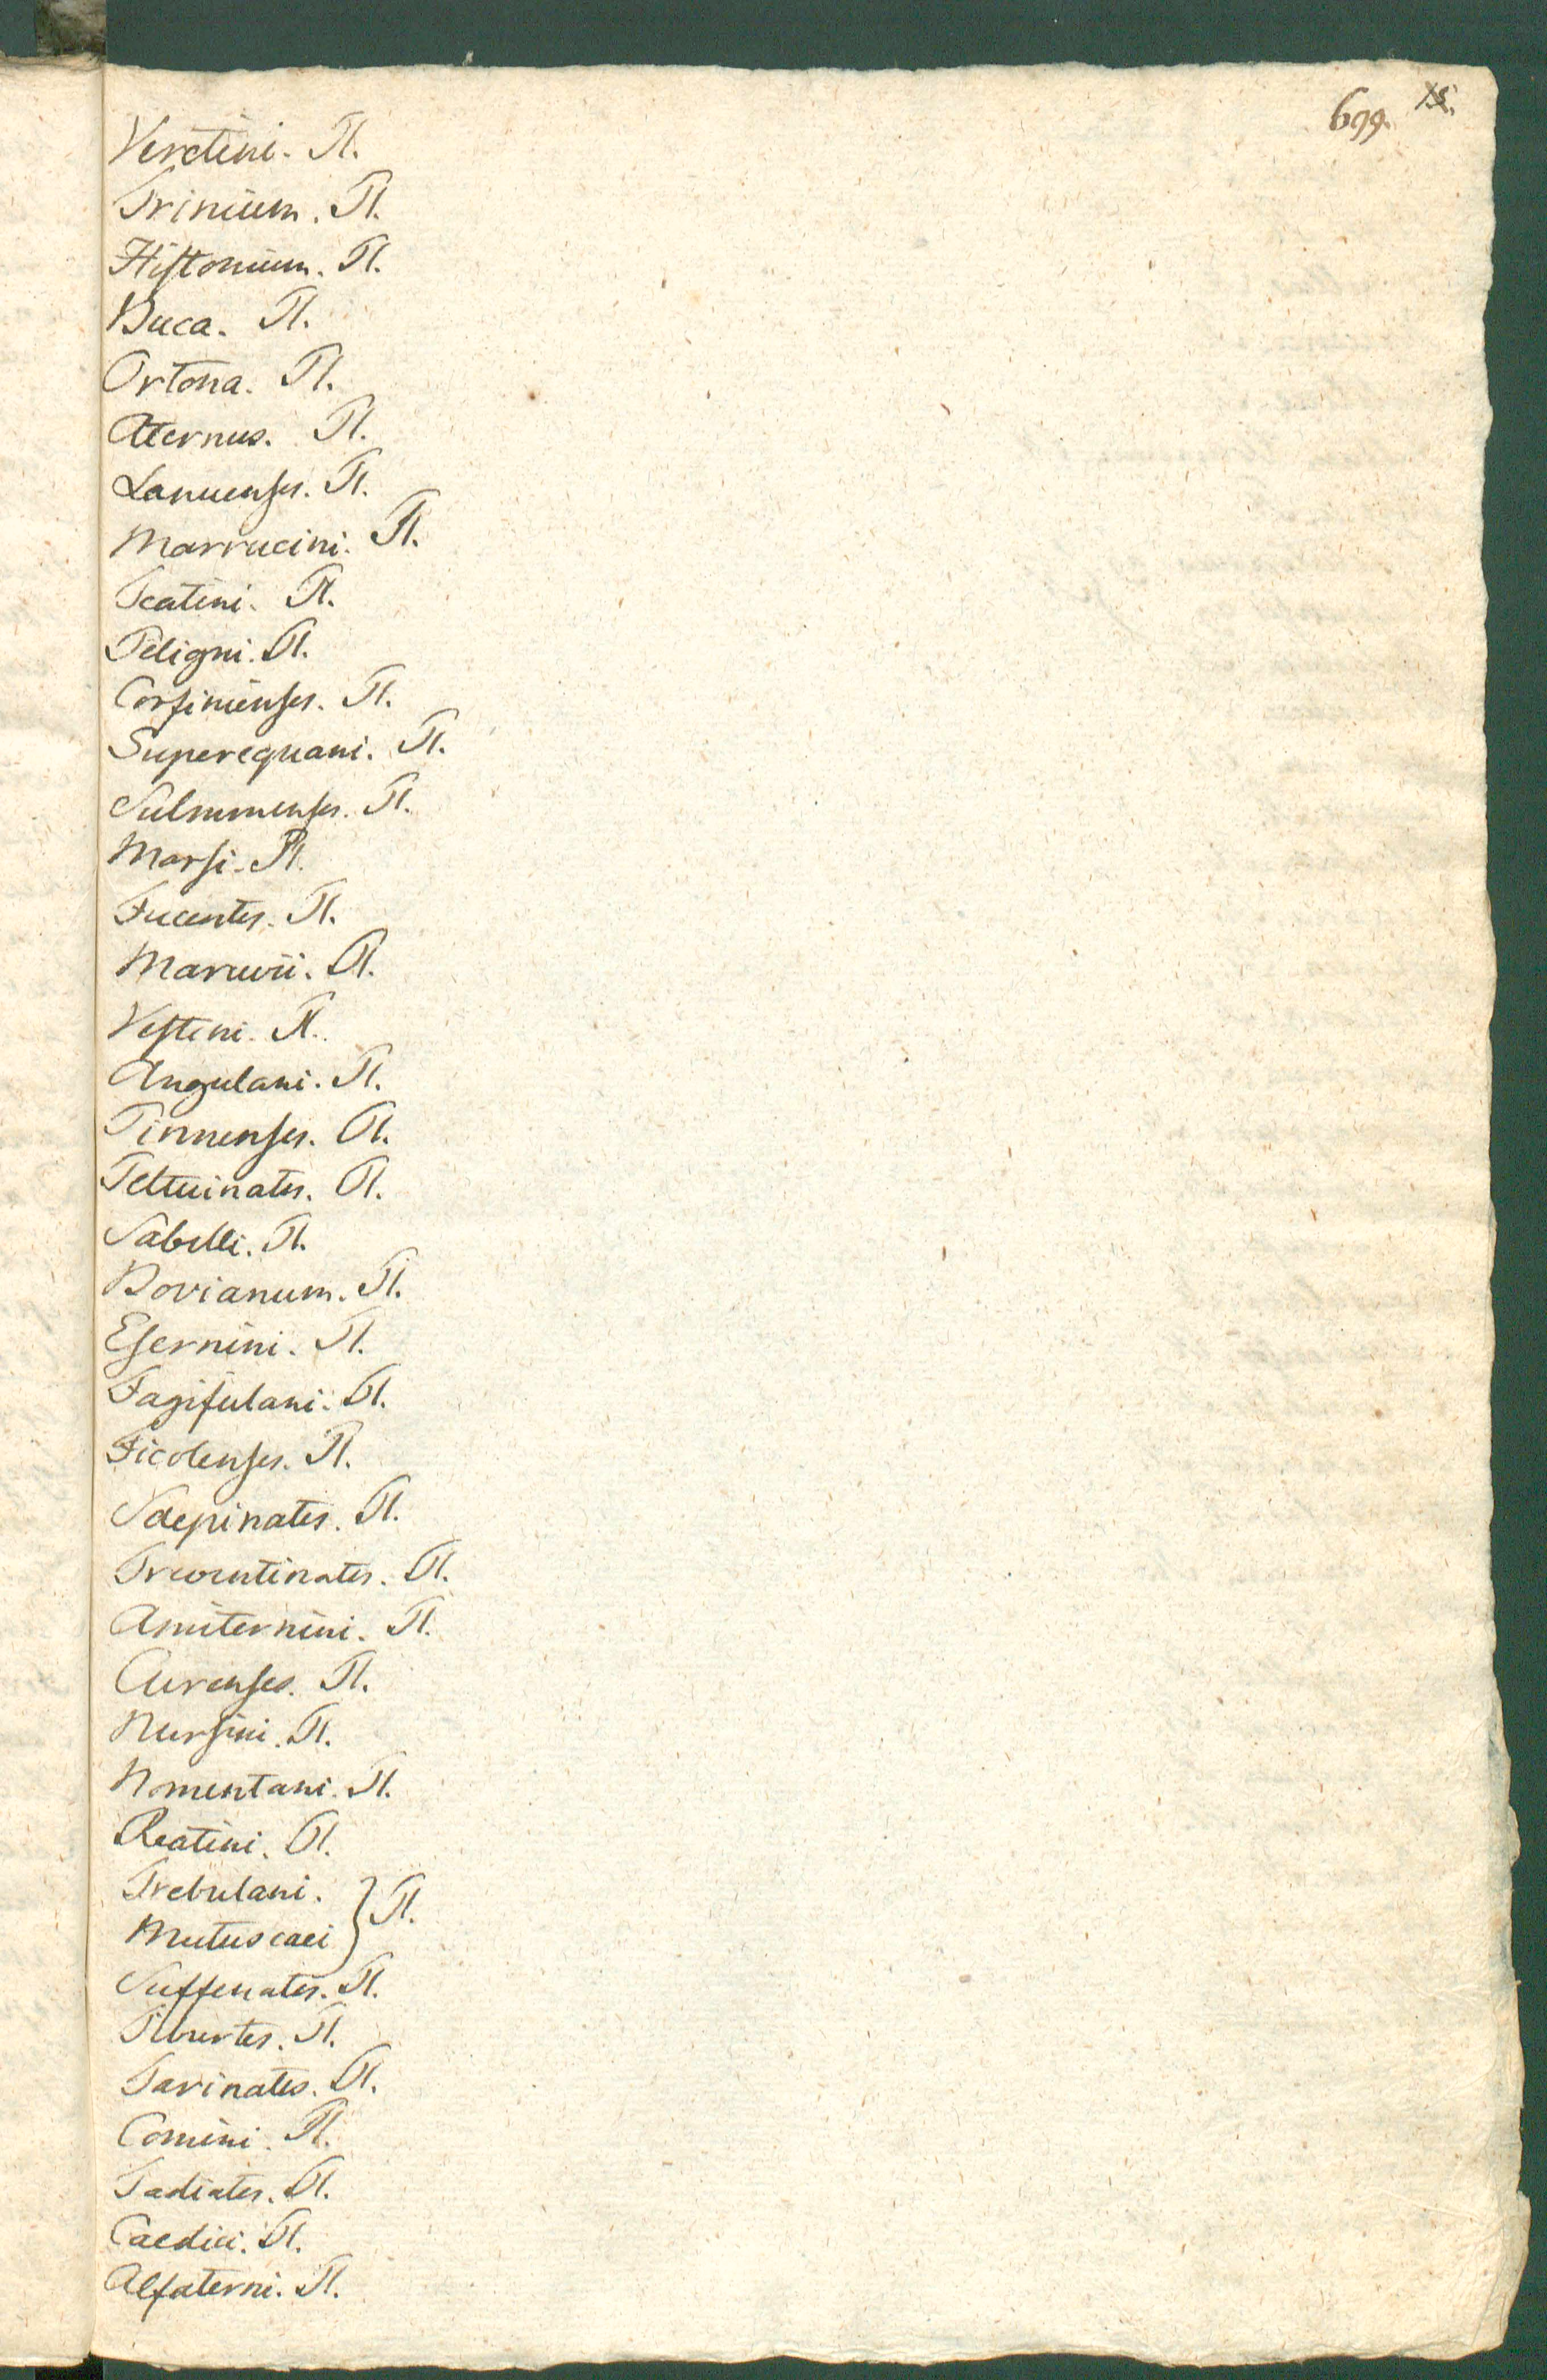 699. 15.
Veretini. Pl.
Trinium. Pl.
Histonium. Pl.
Buca. Pl.
Ortona. Pl.
Aternus. Pl.
Lanuenses. Pl.
Marrucini. Pl.
Teatini. Pl.
Peligni. Pl.
Corfinienses. Pl.
Superequani. Pl.
Sulmonenses. Pl.
Marsi. Pl.
Fucentes. Pl.
Maruvii. Pl.
Vestini. Pl.
Angulani. Pl.
Pinnenses. Pl.
Peltuinates. Pl.
Sabelli. Pl.
Bovianum. Pl.
Esernini. Pl.
Fagifulani. Pl.
Ficolenses. Pl.
Saepinates. Pl.
Treventinates. Pl.
Amiternini. Pl.
Curenses. Pl.
Nursini. Pl.
Nomentani. Pl.
Reatini. Pl.
Trebulani. } Pl.
Mutuscaei
Suffenates. Pl.
Tiburtes. Pl.
Tarinates. Pl.
Comini. Pl.
Tadiates. Pl.
Caedici. Pl.
Alfaterni. Pl.